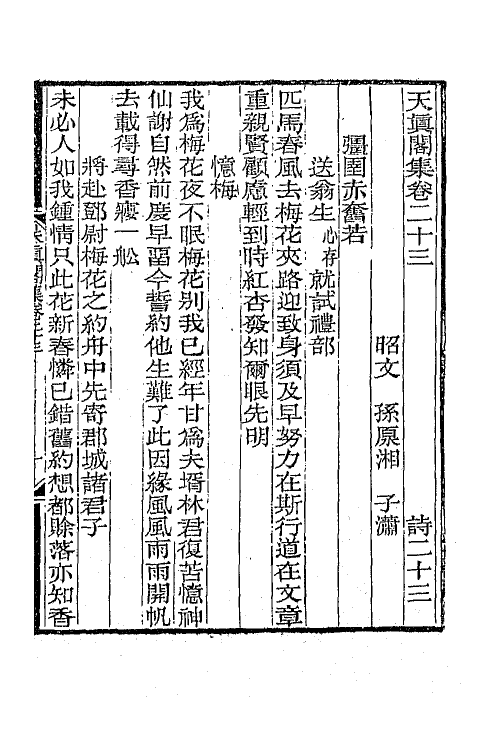 天眞閣集卷二十三　詩二十三
昭文　孫原湘　子瀟
彊圉赤奮若
送翁生心存就試禮部
匹馬春風去梅花夾路迎致身須及早努力在斯行道在文章
重親賢顧慮輕到時紅杏發知爾眼先明
憶梅
我爲梅花夜不眠梅花別我已經年甘爲夫壻林君復苦憶神
仙謝自然前度早畱今誓約他生難了此因緣風風雨雨開帆
去載得尋香癭一舩
將赴鄧尉梅花之約舟中先寄郡城諸君子
未必人如我鍾情只此花新春憐已錯舊約想都賖落亦知香